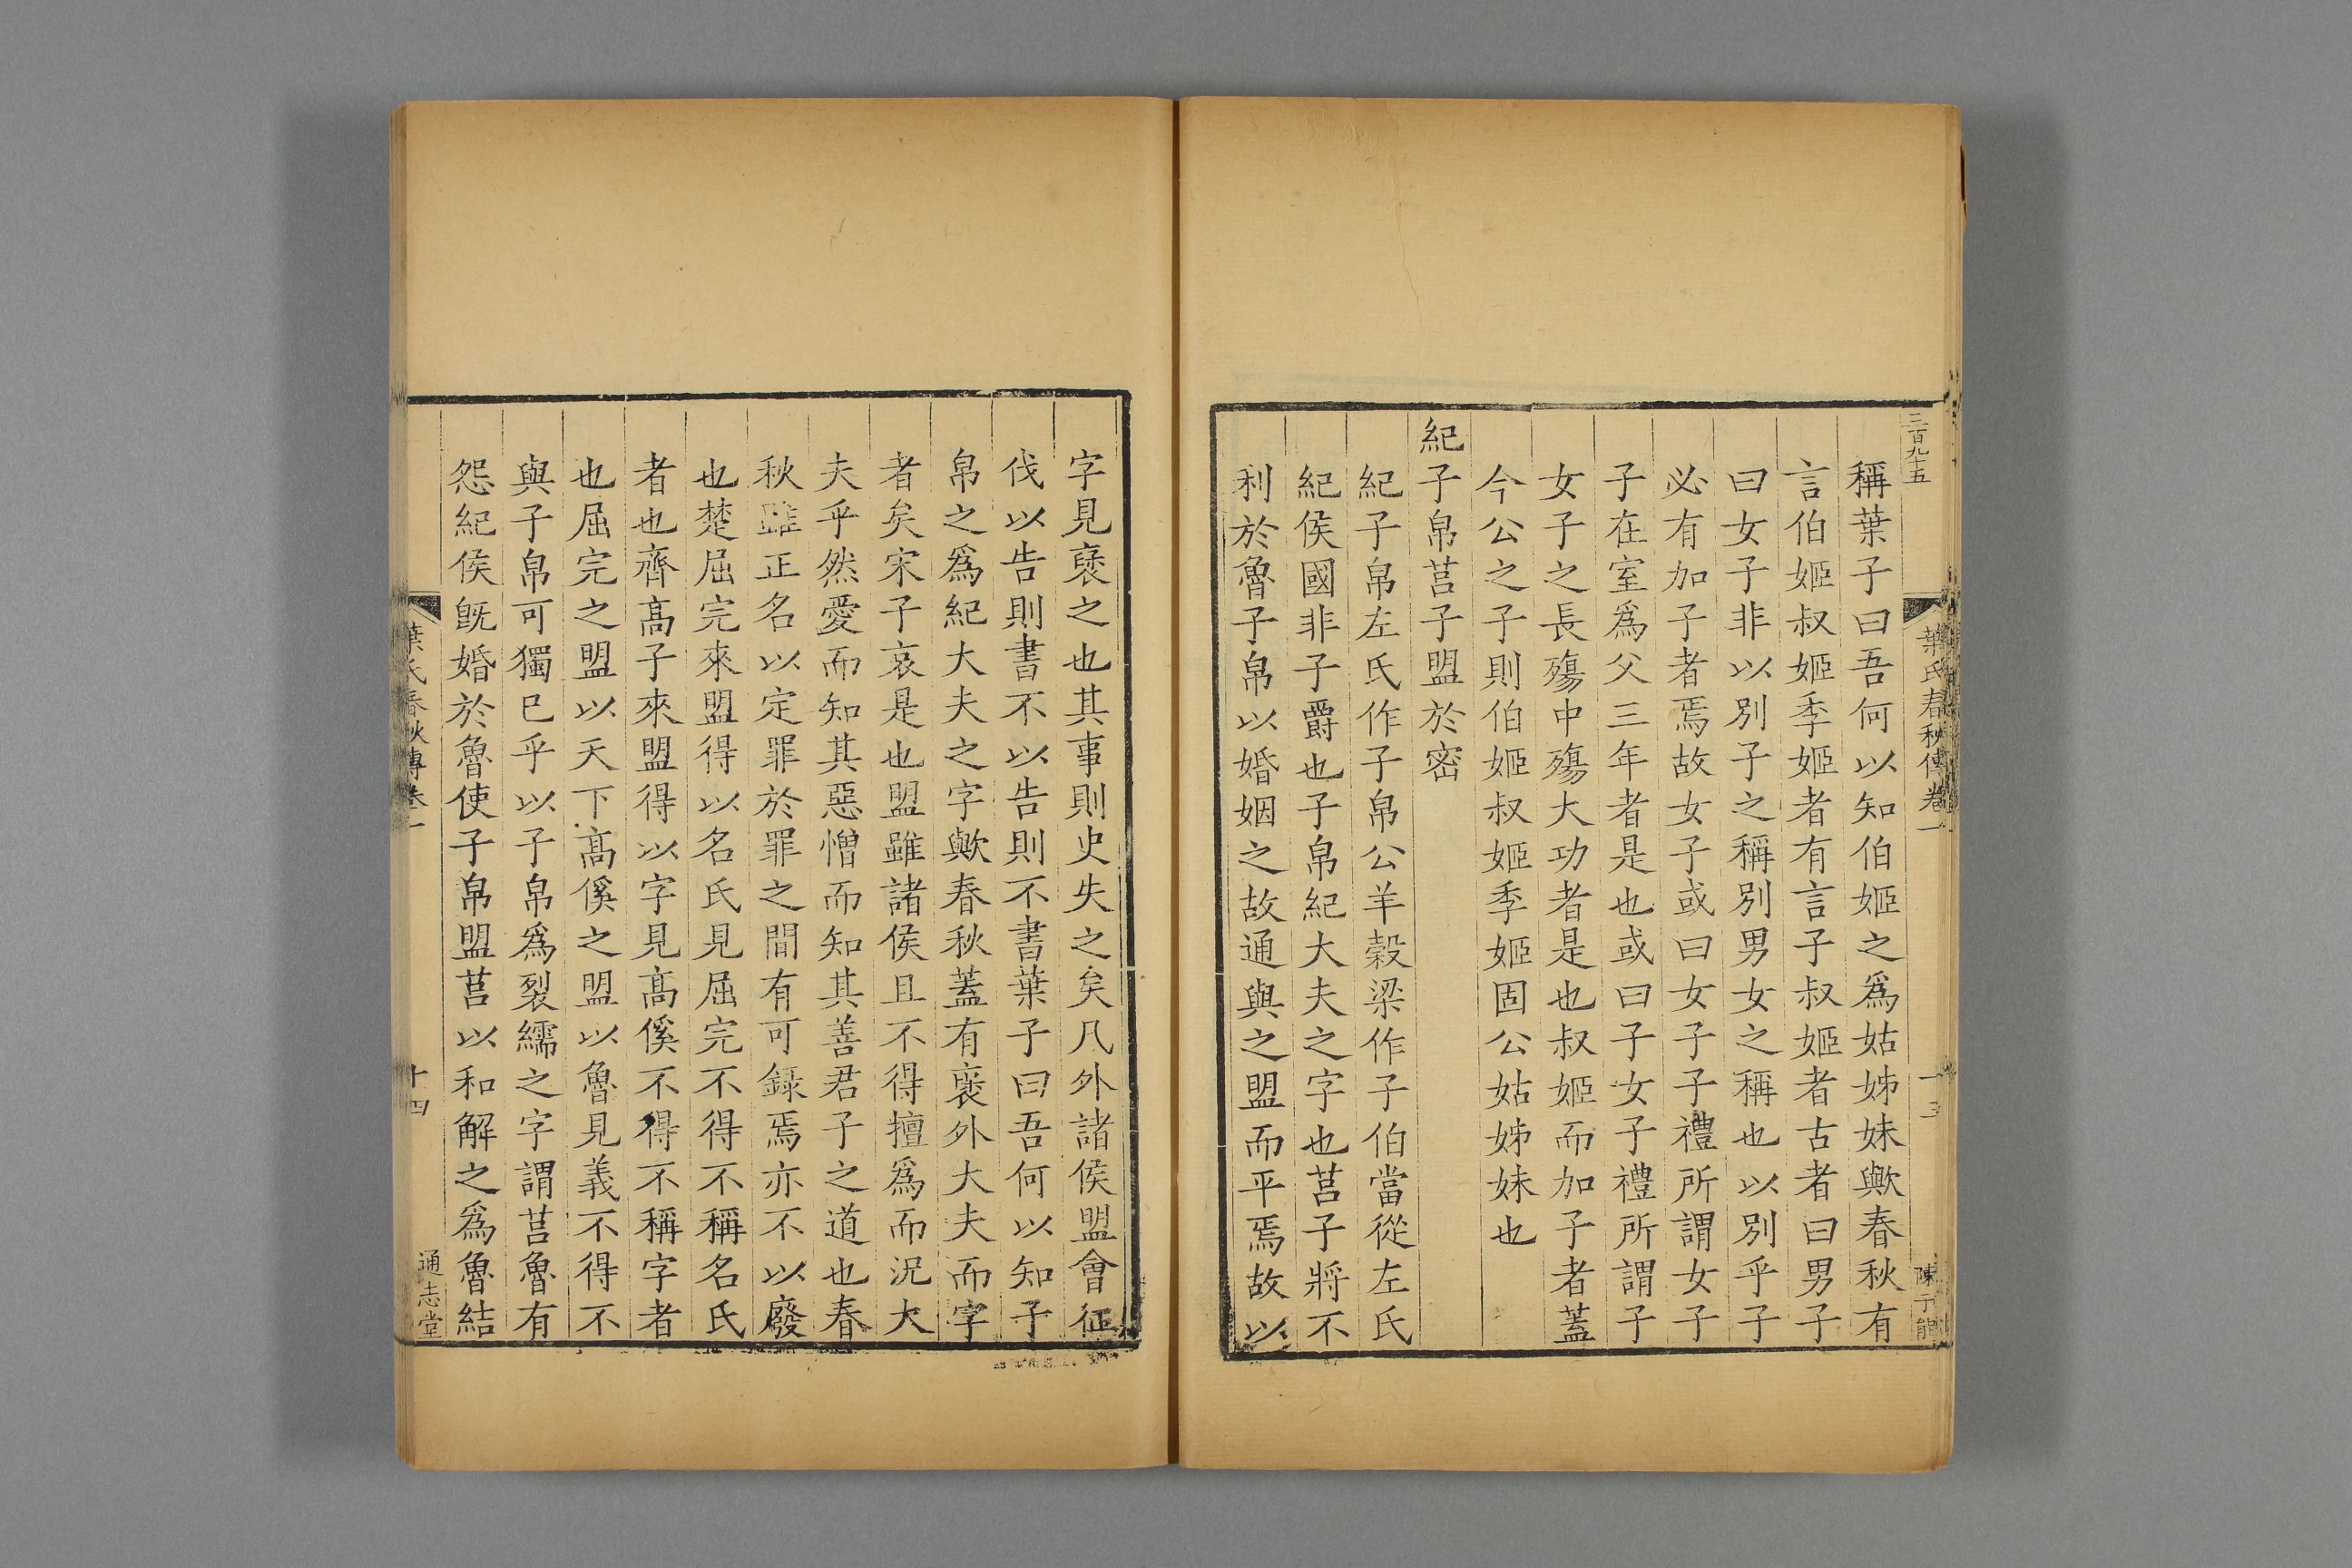 三百九十五
葉氏春秋傳卷一
十三
陳子能
稱葉子曰吾何以知伯姬之爲姑姊妹歟春秋有
言伯姬叔姬季姬者有言子叔姬者古者曰男子
曰女子非以別子之稱別男女之稱也以別乎子
必有加子者焉故女子或曰女子子禮所謂女子
子在室爲父三年者是也或曰子女子禮所謂子
女子之長殤中殤大功者是也叔姬而加子者蓋
今公之子則伯姬叔姬季姬固公姑姊妹也
紀子帛莒子盟於密
紀子帛左氏作子帛公羊穀梁作子伯當從左氏
紀侯國非子爵也子帛紀大夫之字也莒子將不
利於魯子帛以婚姻之故通與之盟而平焉故以
字見襃之也其事則史失之矣凡外諸侯盟會征
伐以告則書不以告則不書葉子曰吾何以知子
帛之爲紀大夫之字歟春秋蓋有襃外大夫而字
者矣宋子哀是也盟雖諸侯且不得擅爲而況大
夫乎然愛而知其惡憎而知其善君子之道也春
秋雖正名以定罪於罪之間有可錄焉亦不以廢
也楚屈完來盟得以名氏見屈完不得不稱名氏
者也齊髙子來盟得以字見髙傒不得不稱字者
也屈完之盟以天下髙傒之盟以魯見義不得不
與子帛可獨已乎以子帛爲裂繻之字謂莒魯有
怨紀侯旣婚於魯使子帛盟莒以和解之爲魯結
葉氏春秋傳卷一
十四
通志堂